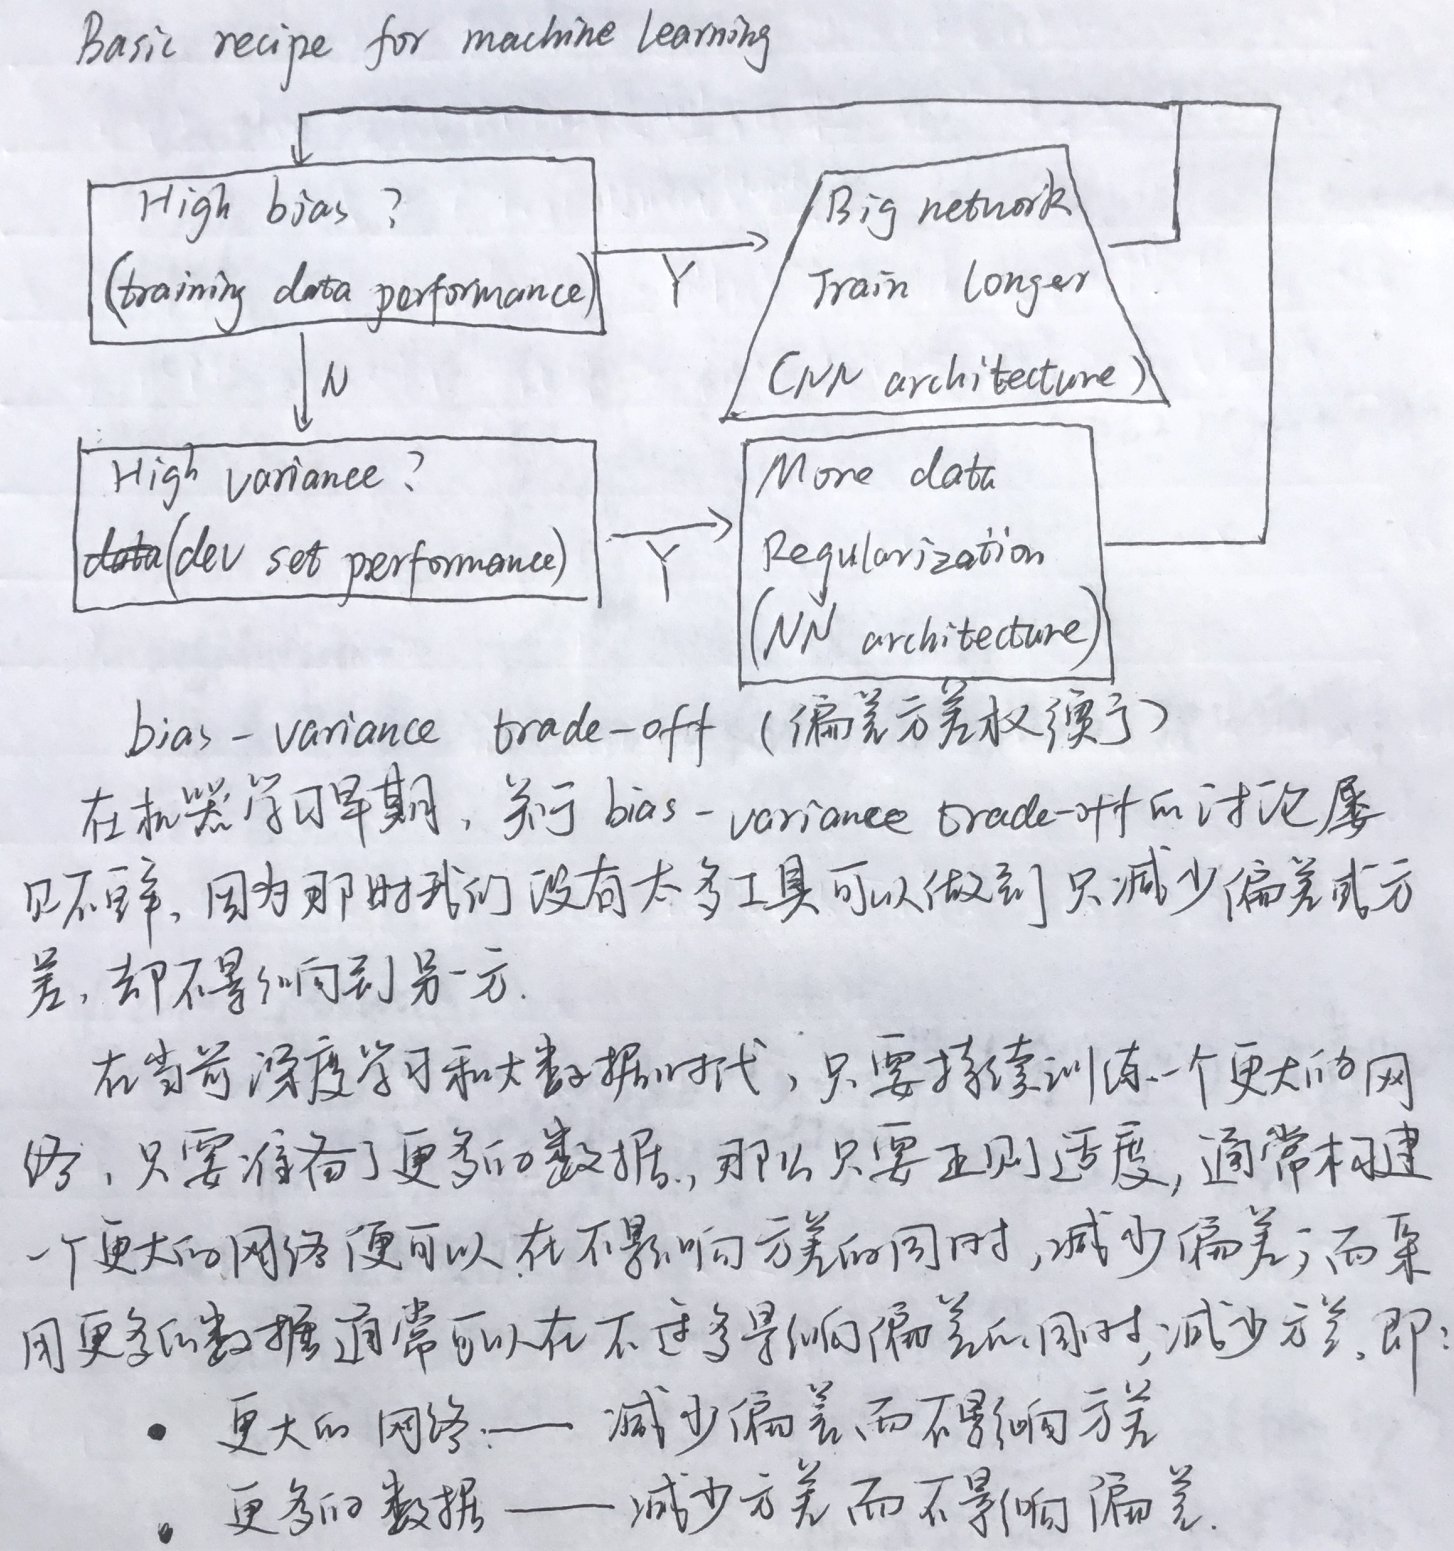 Basic recipe for machine learning
High bias ?
(training data performance)
Y
Big network
Train longer
(NN architecture)
N
High variance ?
data(dev set performance)
Y
More data
Regularization
(NN architecture)
bias-variance trade-off (偏差方差权衡)
在机器学习早期，关于bias-variance trade-off的讨论屡
见不鲜，因为那时我们没有太多工具可以做到只减少偏差或方
差，却不影响到另一方.
在当前深度学习和大数据时代，只要持续训练一个更大的网
络，只要准备了更多的数据，那么只要正则适度，通常构建
一个更大的网络便可以在不影响方差的同时，减少偏差；而采
用更多的数据通常可以在不过多影响偏差的同时，减少方差，即：
• 更大的网络：—— 减少偏差而不影响方差
• 更多的数据 —— 减少方差而不影响偏差.